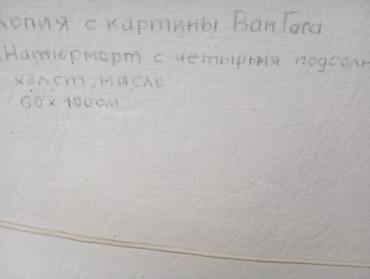 копия с картины Ван Гога
Натюрморт с четырьмя подсолн
холст, масло
60 x 100 см